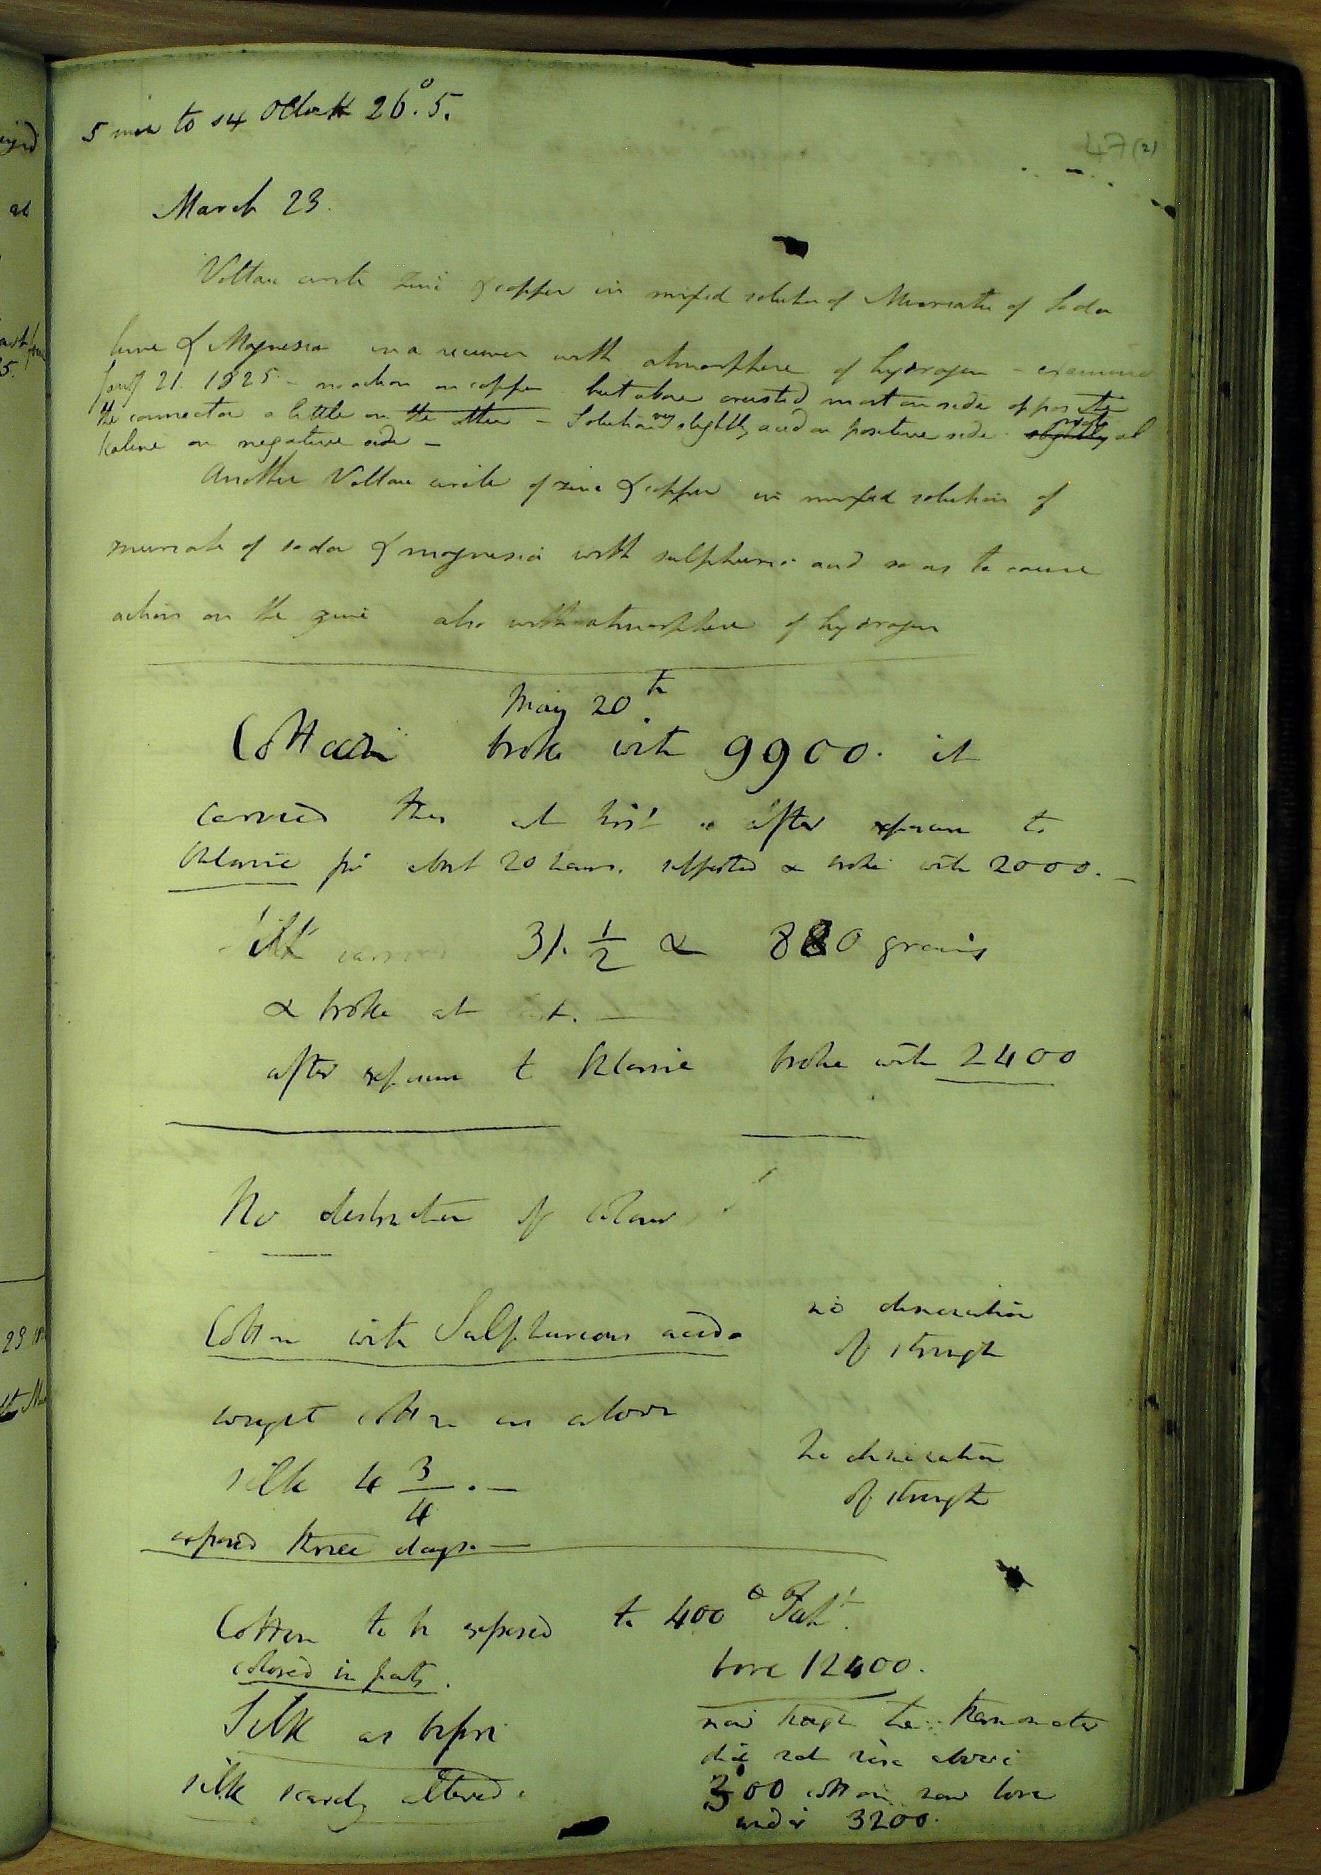 5 min to 14 OClock 26°.5.
47(2)
March 23.
Voltaic circle zinc & copper in mixed solution of Muriate of Soda
lime & Magnesia in a receiver with atmosphere of hydrogen - examined
Jany 21. 1825 - no action on copper but above crusted most on side opposite
the connector a little on the other - Solution very slightly acid on positive side slightly al
kaline on negative side -
Another Voltaic circle of zinc & copper in mixed solution of
muriate of soda & magnesia with sulphuric acid so as to cause
action on the zinc also with atmosphere of hydrogen
May 20th
Cotton broke with 9900. it
carried this at first. after exposure to
Chlorine for about 20 hours. supported & broke with 2000. -
Silk 31. 1/2 & 880 grains
& broke at
after exposure to Chlorine broke with 2400
No destruction of colour
Cotton with Sulphureous acid
no diminution
of strength
weight cotton as above
silk 4 3/4. -
no diminution
of strength
exposed three days. -
Cotton to be exposed to 400° Faht.
colored in parts.
bore 12400.
Silk as before
silk scarcely altered.
now though the thermometer
did not rise above
300° cotton now bore
under 3200.